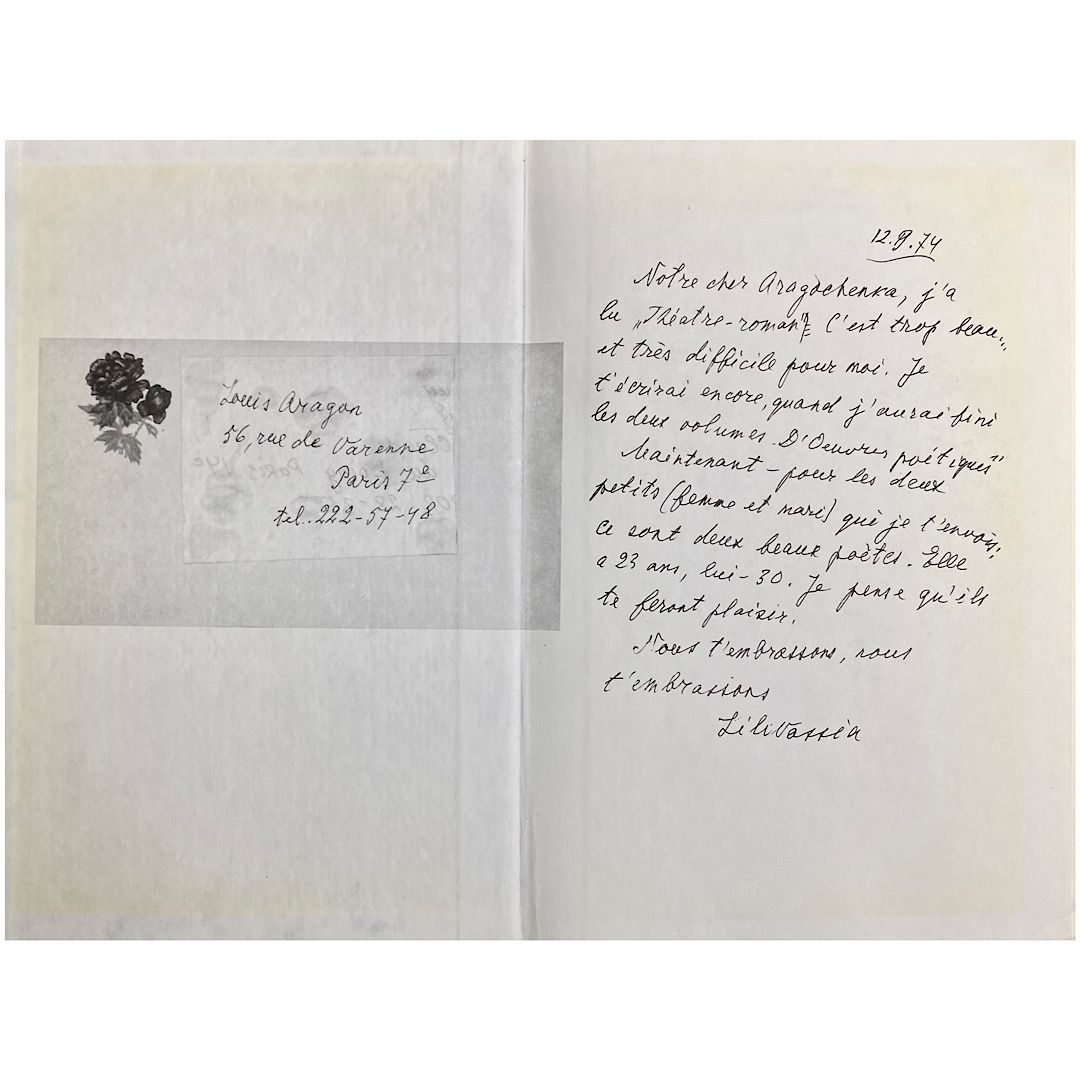 Louis Aragon
56, rue de Varenne
Paris 7e
tel. 222-57-48
12.9.74
Notre cher Aragochenka, j'a
lu „Théatre-roman". C'est trop beau...
et très difficile pour moi. Je
t'écrirai encore, quand j'aurai fini
les deux volumes D'Oeuvres poétiques"
Maintenant – pour les deux
petits (femme et mari) que je t'envois:
ce sont deux beaux poètes. Elle
a 23 ans, lui – 30. Je pense qu'ils
te feront plaisir.
Nous t'embrassons, nous
t'embrassions
LiliVassia